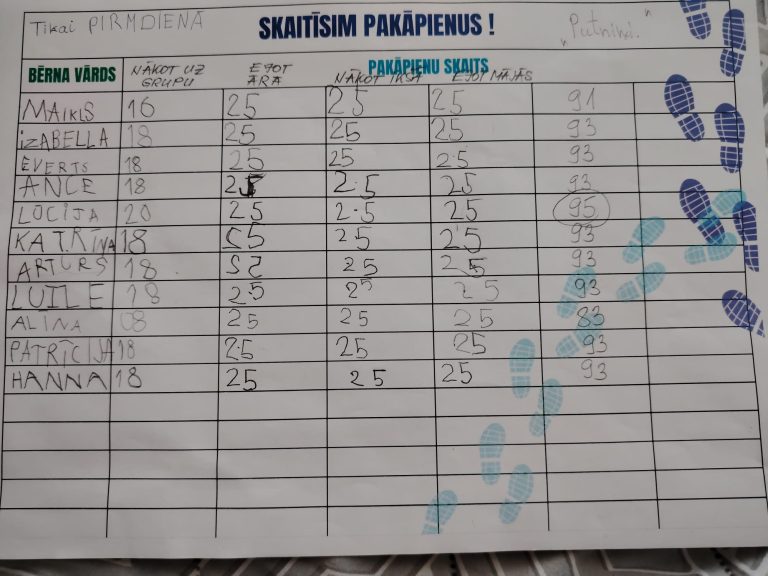 Tikai PIRMDIENĀ SKAITĪSIM PAKĀPIENUS ! "Putniņi."
BĒRNA VĀRDS PAKĀPIENU SKAITS
NĀKOT UZ GRUPU EJOT ĀRĀ NĀKOT IKŠĀ EJOT MĀJĀS
MAIKLS 16 25 25 25 91
iZABELLA 18 25 25 25 93
EVERTS 18 25 25 25 93
ANCE 18 25 25 25 93
LŪCIJA 20 25 25 25 95
KATRĪNA 18 25 25 25 93
ARTURS 18 25 25 25 93
LUĪZE 18 25 25 25 93
ALINA 08 25 25 25 83
PATRĪCIJA 18 25 25 25 93
HANNA 18 25 25 25 93